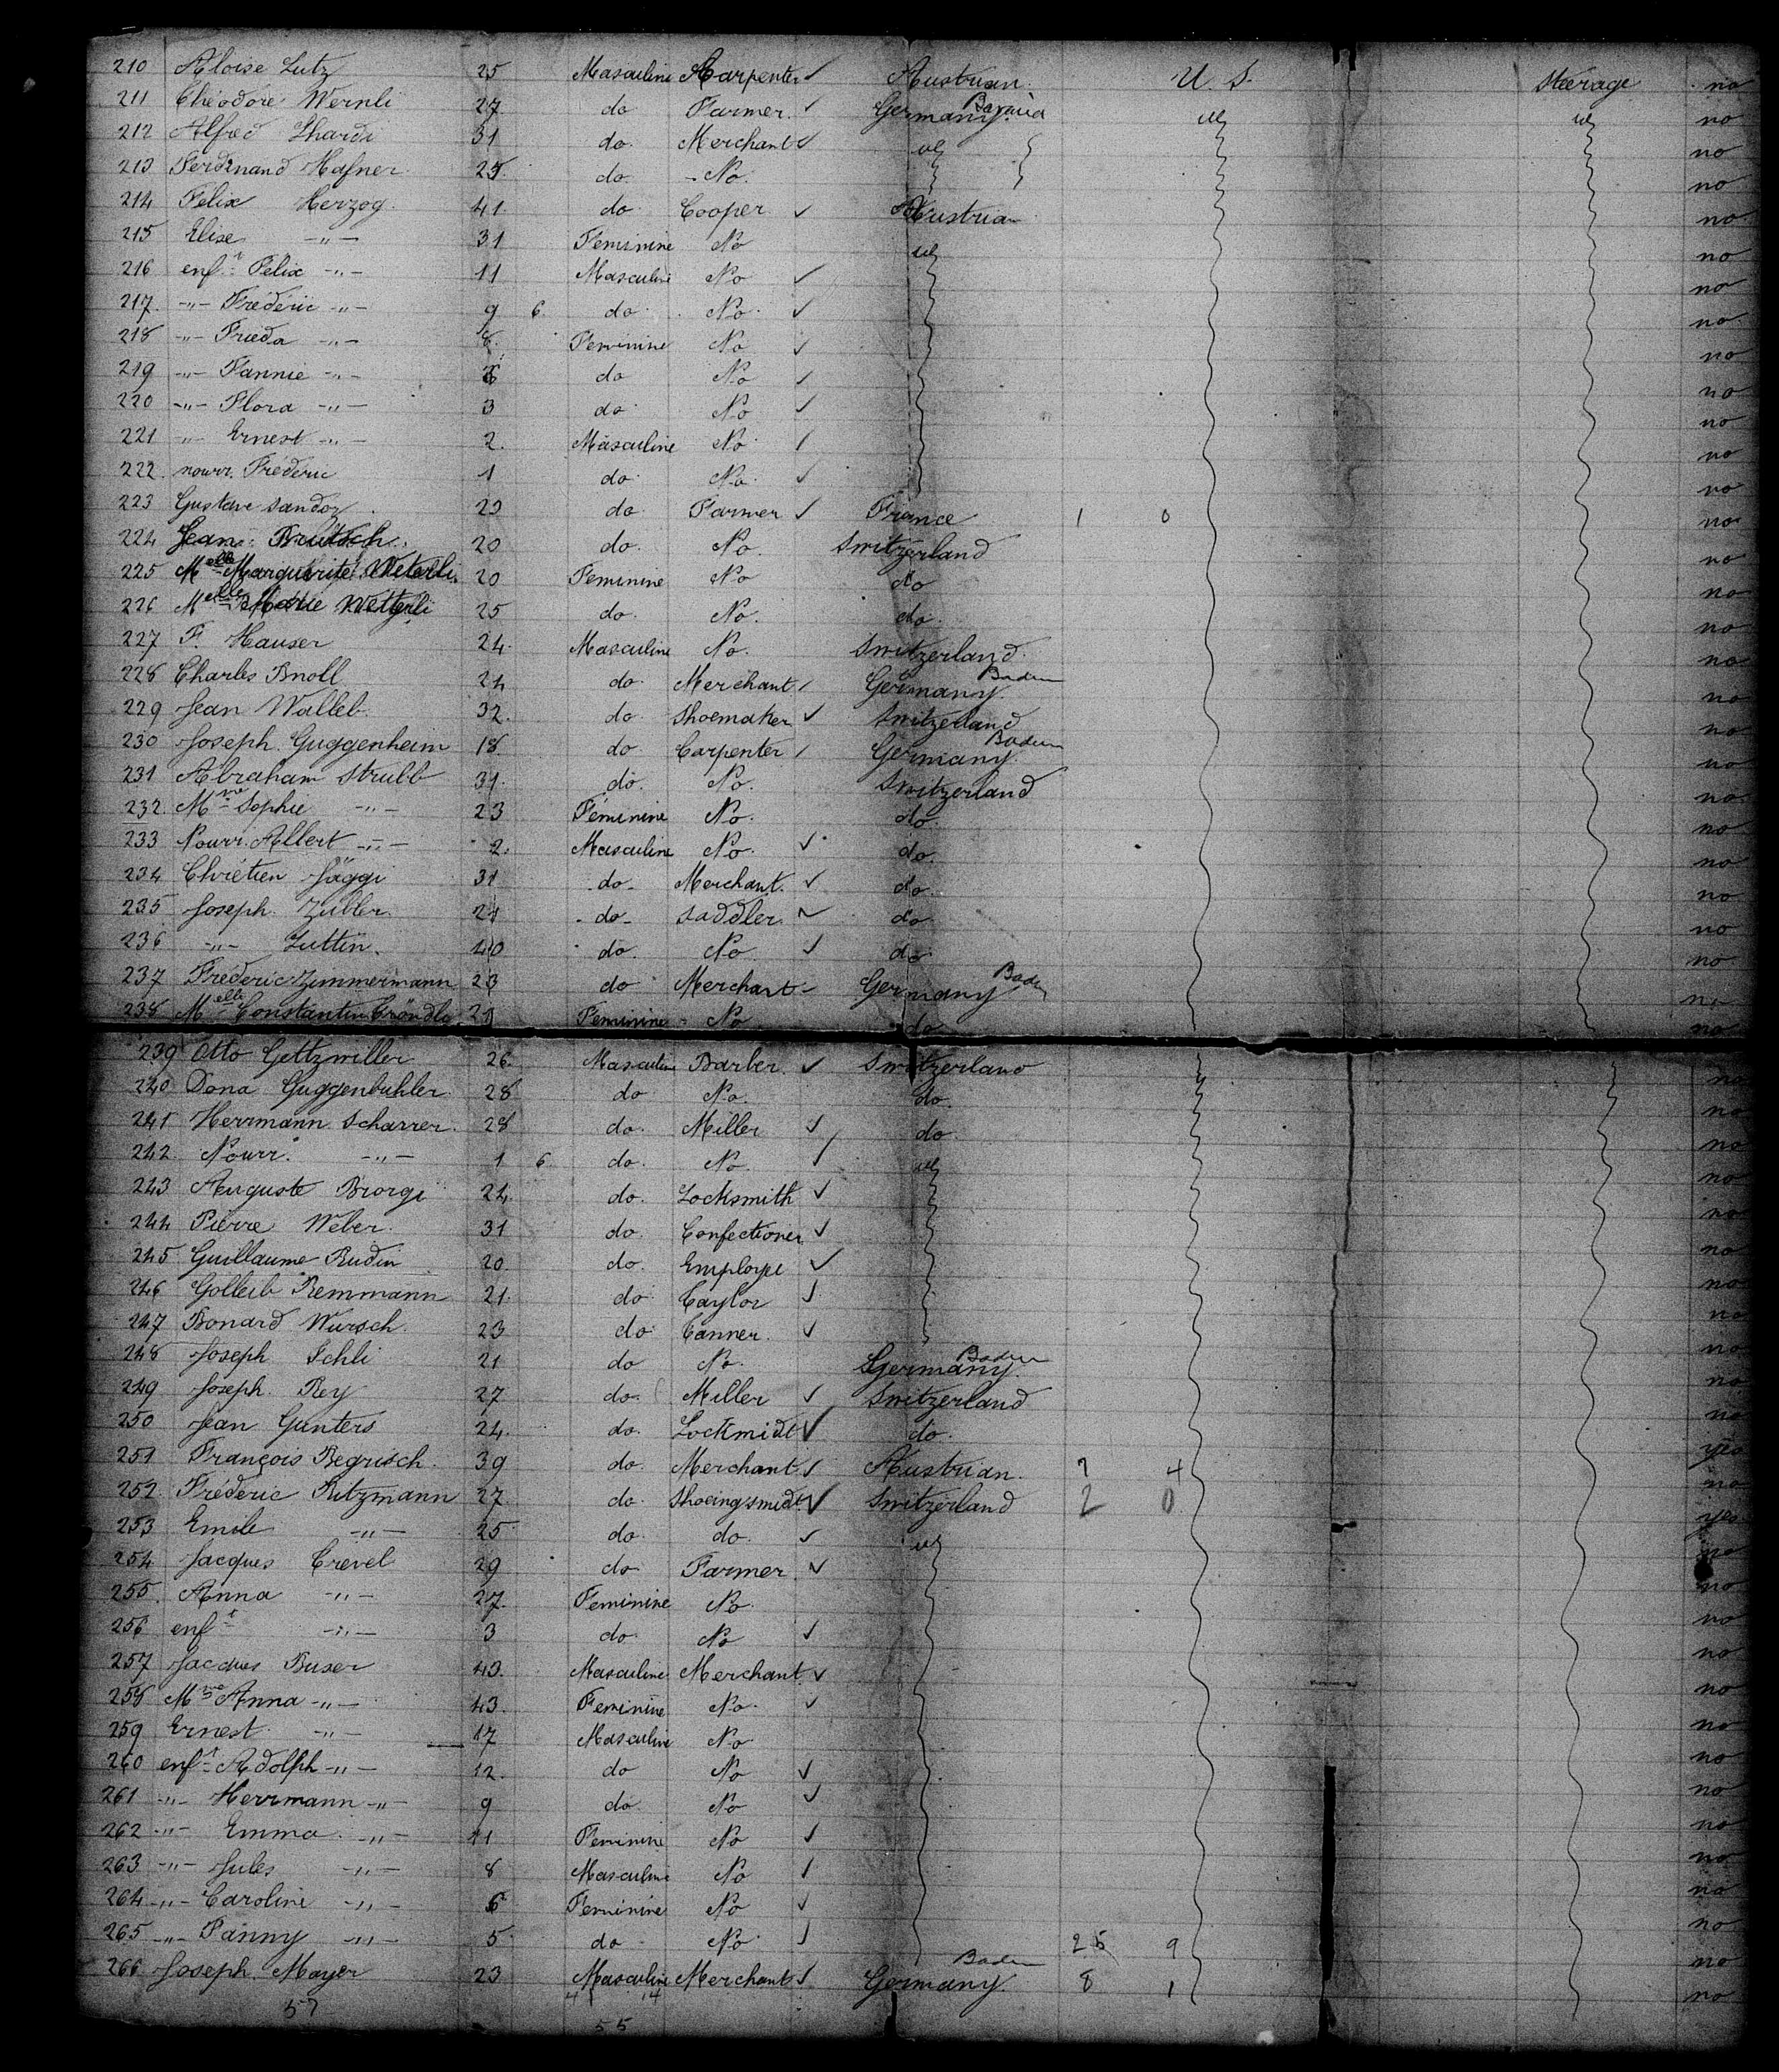 210 Aloise Lutz 25 Masculine Carpenter ✓ Austrian U. S. Steerage no
211 Théodore Wernli 27 do Farmer ✓ Germany Bavaria id id no
212 Alfred 31 do Merchant ✓ id no
213 Ferdinand Hafner 25 do No no
214 Felix Herzog 41 do Cooper ✓ Austrian no
215 Elise -"- 31 Feminine No id no
216 enf.t Felix -"- 11 Masculine No ✓ no
217 -"- Fréderic -"- 9 6 do No ✓ no
218 -"- Frieda -"- 8 Feminine No ✓ no
219 -"- Fannie -"- do No ✓ no
220 -"- Flora -"- 3 do No ✓ no
221 -"- Ernest -"- 2 Masculine No ✓ no
222 nourr. Fréderic 1 do No ✓ no
223 Gustave Sandoz 29 do Farmer ✓ France 1 0 no
224 Jean Brutsch 20 do No Switzerland no
225 Melle Marguerite Weterli 20 Feminine No do no
226 Melle Marie Wetterli 25 do No do no
227 F. Hauser 24 Masculine No Switzerland no
228 Charles Knoll 24 do Merchant ✓ Germany Baden no
229 Jean Walleb 32 do Shoemaker ✓ Switzerland no
230 Joseph Guggenheim 18 do Carpenter ✓ Germany Baden no
231 Abraham Strubb 31 do No Switzerland no
232 Mme Sophie -"- 23 Féminine No do no
233 Nourr. Albert -"- 2 Masculine No ✓ do no
234 Chrétien Jäggi 31 do Merchant ✓ do no
235 Joseph Zubler 21 do Saddler ✓ do no
236 -"- Luttin 40 do No ✓ do no
237 Frederic Zimmermann 23 do Merchant Germany Baden no
238 Melle Constantin 21 Feminine No do no
239 Otto Gettzwiller 26 Masculine Barber ✓ Switzerland no
240 Dona Guggenbuhler 28 do No do no
241 Herrmann Scharrer 28 do Miller ✓ do no
242 Nourr. -"- 1 6 do No ✓ id no
243 Auguste Brorgi 24 do Locksmith ✓ no
244 Pierre Weber 31 do Confectioner ✓ no
245 Guillaume Rudin 20 do Employe ✓ no
246 Golleib Remmann 21 do Taylor ✓ no
247 Bonard Wursch 23 do Tanner ✓ no
248 Joseph Schli 21 do No Germany Baden no
249 Joseph Rey 27 do Miller ✓ Switzerland no
250 Jean Gunters 24 do Lockmidt ✓ do yes
251 François Begrisch 39 do Merchant ✓ Austrian 7 4 no
252 Fréderic Ritzmann 27 do Shoeingsmidt ✓ Switzerland 2 0 yes
253 Emile -"- 25 do do ✓ id no
254 Jacques Trevel 29 do Farmer ✓ no
255 Anna -"- 27 Feminine No no
256 enf.t -"- 3 do No ✓ no
257 Jacques Buser 43 Masculine Merchant ✓ no
258 Mme Anna -"- 43 Feminine No ✓ no
259 Ernest -"- 17 Masculine No no
260 enf.t Adolph -"- 12 do No ✓ no
261 -"- Herrmann -"- 9 do No ✓ no
262 -"- Emma -"- 11 Feminine No ✓ no
263 -"- Jules -"- 8 Masculine No ✓ no
264 -"- Caroline -"- 6 Feminine No ✓ no
265 -"- Fanny -"- 5 do No ✓ 25 9 no
266 Joseph Mayer 23 Masculine Merchant ✓ Germany Baden 8 1 no
57 41 14
55